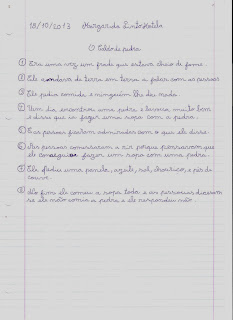 18/10/2013 Margarida Pinto
O Caldo de pedra
① Era uma vez um frade que estava cheio de fome.
② Ele andava de terra em terra a falar com as pessoas
③ Ele pedia comida e ninguém lhe deu nada.
④ Um dia encontrou uma pedra e lavou-a muito bem
e disse que ia fazer uma sopa com a pedra.
⑤ E as pessoas ficaram admiradas com o que ele disse.
⑥ As pessoas começaram a rir porque pensaram que
ele conseguia fazer um sopa com uma pedra.
⑦ Ele pediu uma panela, azeite, sal, chouriço, e pés de
couve.
⑧ No fim ele comeu a sopa toda e as pessoas disseram
se ele não comia a pedra e ele respondeu não.